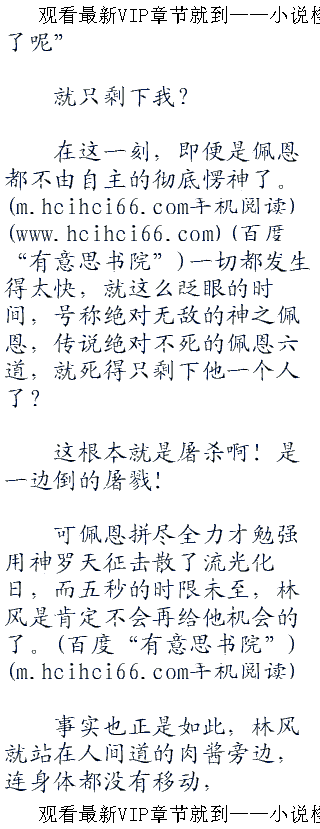 观看最新VIP章节就到——小说检
了呢”
就只剩下我？
在这一刻，即便是佩恩
都不由自主的彻底愣神了。
(m.hcihci66.com手机阅读)
(www.hcihci66.com)(百度
“有意思书院”)一切都发生
得太快，就这么眨眼的时
间，号称绝对无敌的神之佩
恩，传说绝对不死的佩恩六
道，就死得只剩下他一个人
了？
这根本就是屠杀啊！是
一边倒的屠戮！
可佩恩拼尽全力才勉强
用神罗天征击散了流光化
日，而五秒的时限未至，林
风是肯定不会再给他机会的
了。(百度“有意思书院”)
(m.hcihci66.com手机阅读)
事实也正是如此，林风
就站在人间道的肉酱旁边，
连身体都没有移动，
观看最新VIP章节就到——小说检